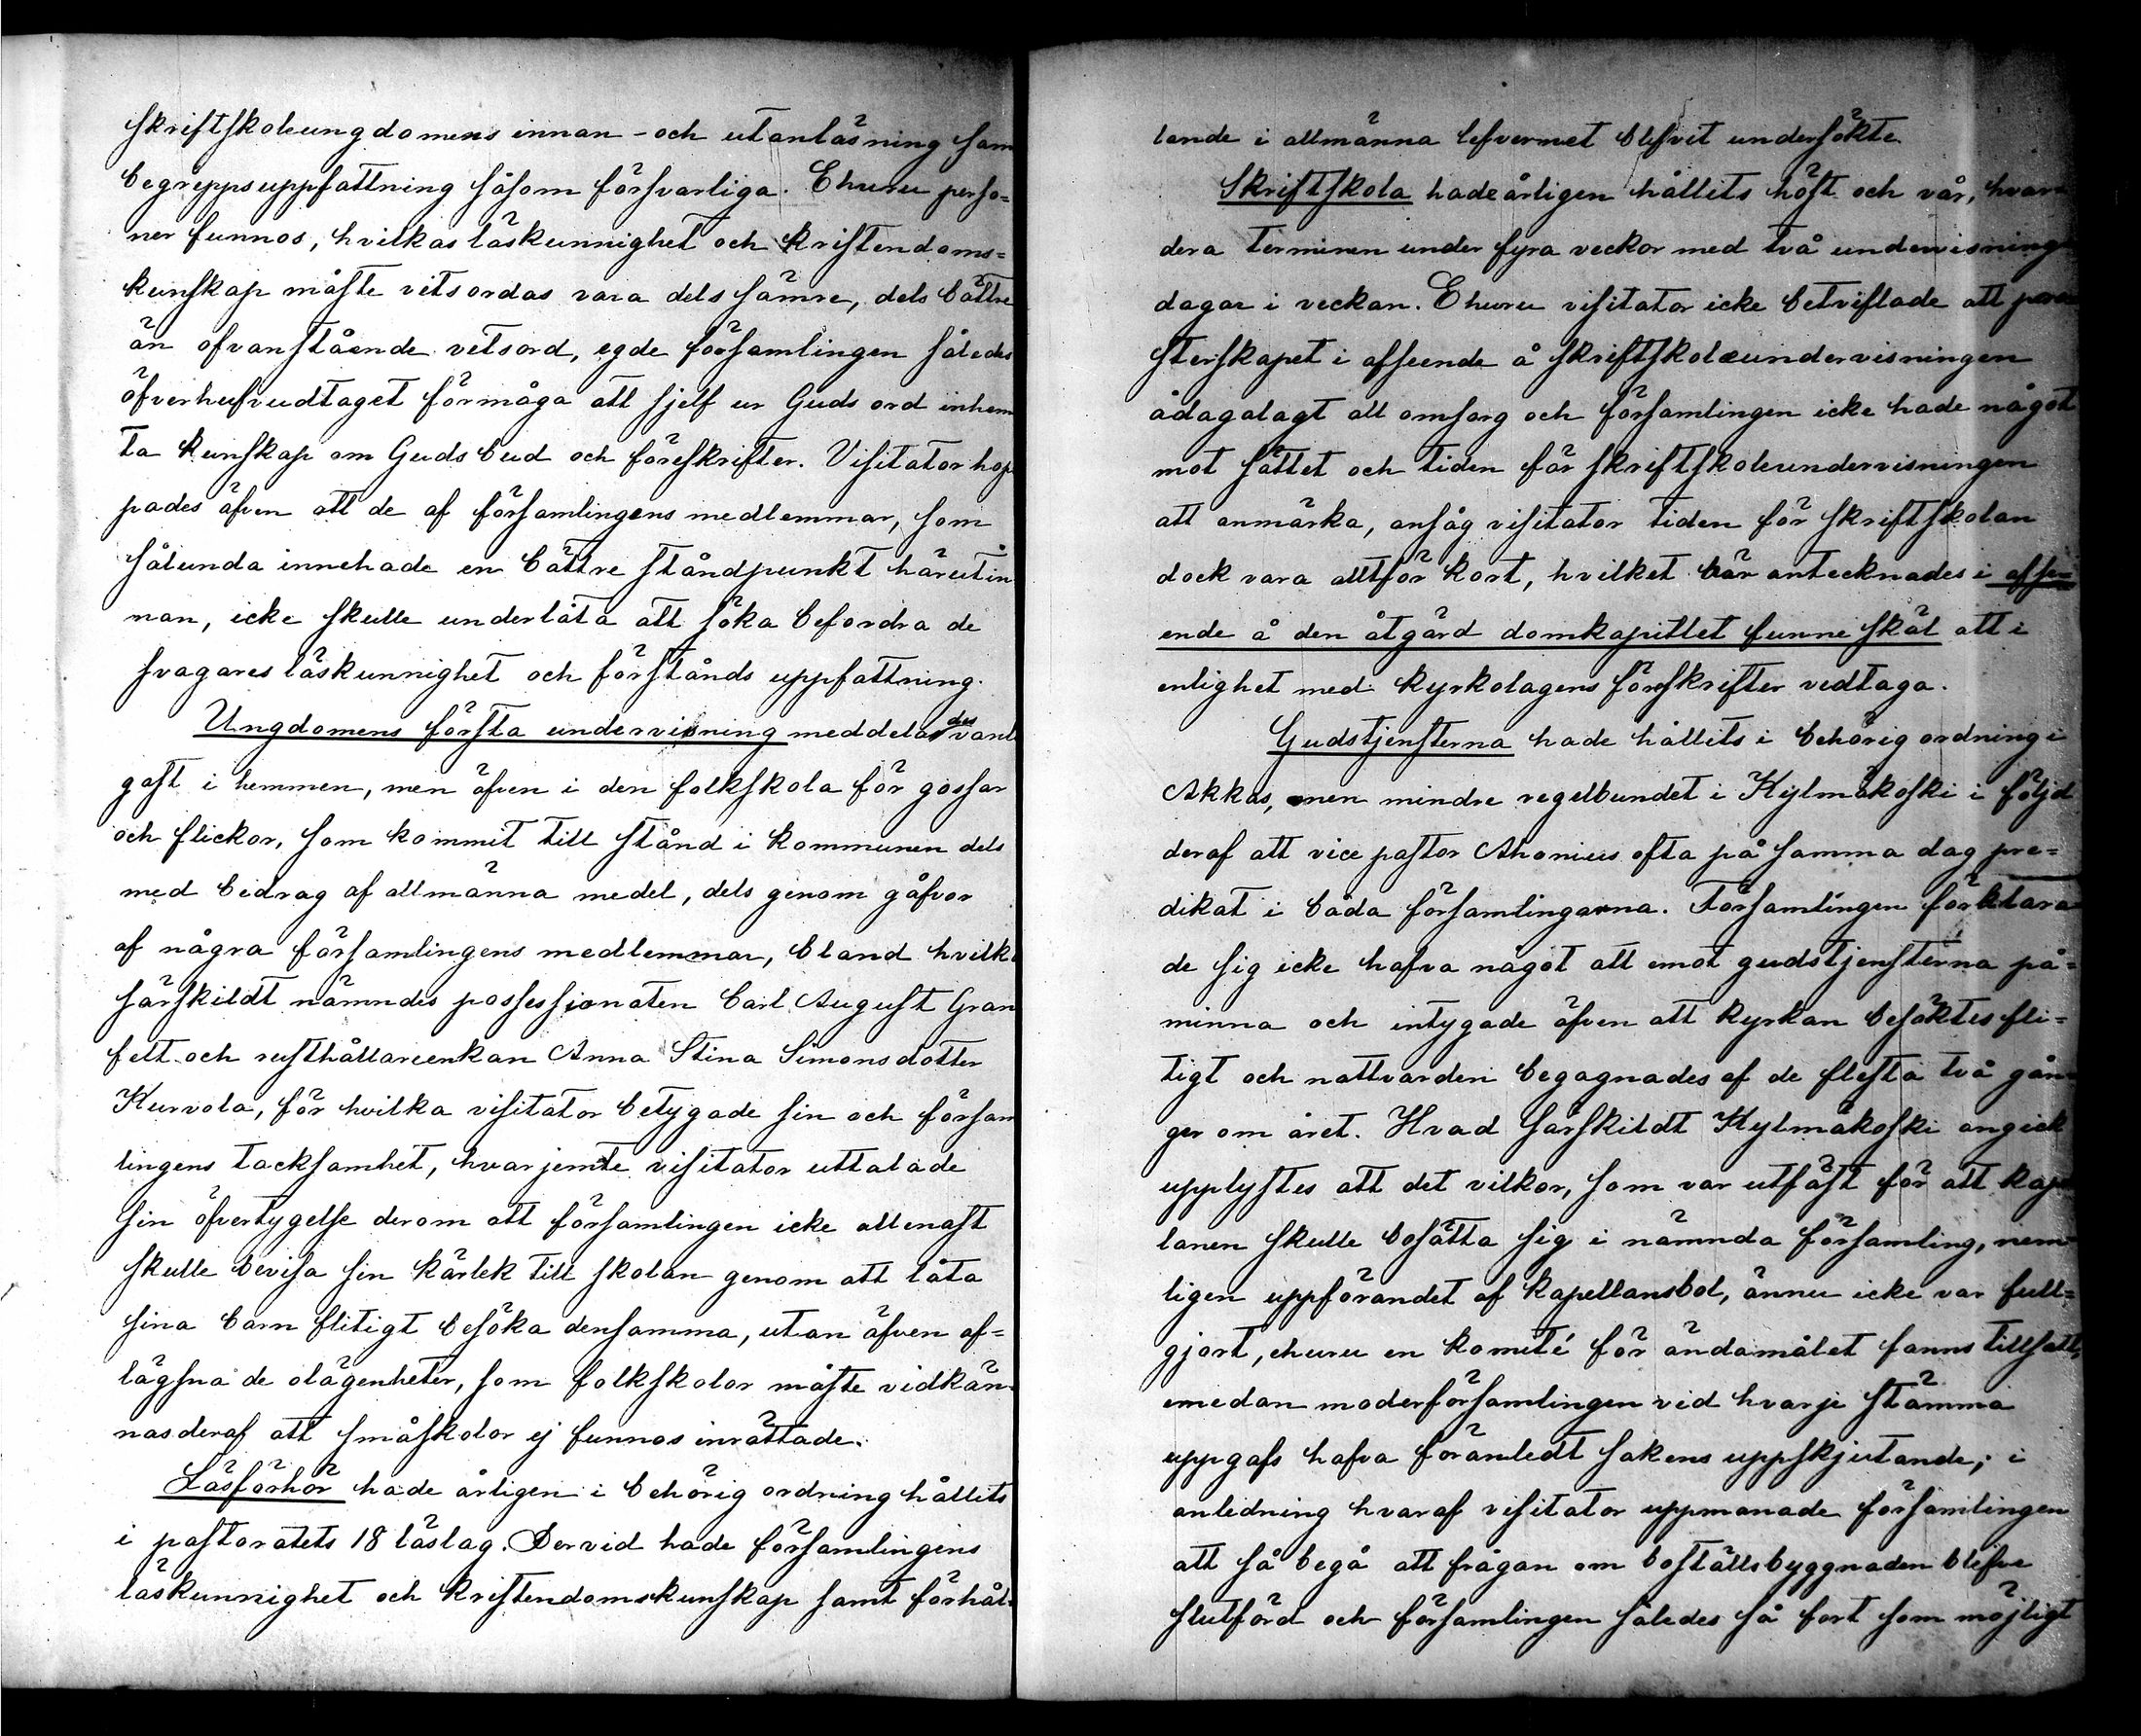 skriftskoleungdomens innan- och utanläsning sam
begreppsuppfattning såsom försvarliga. Ehuru perso=
ner funnos, hvilkas läskunnighet och kristendoms=
kunskap måste vitsordas vara dels sämre, dels bättre
än ofvanstående vetsord, egde församlingen således
öfverhufvudtaget förmåga att sjelf ur Guds ord inhem
ta kunskap om Guds bud och föreskrifter. Visitator hop
pades äfven att de af församlingens medlemmar, som
sålunda innehade en bättre ståndpunkt härutin
nan, icke skulle underlåta att söka befordra de
svagares läskunnighet och förstånds uppfattning.
Ungdomens första undervisning meddelades vanl
gast i hemmen, men äfven i den folkskola för gossar
och flickor, som kommit till stånd i kommunen dels
med bidrag af allmänna medel, dels genom gåfvor
af några församlingens medlemmar, bland hvilk
särskildt nämndes possessionaten Carl August Gran
felt och rusthållareenkan Anna Stina Simonsdotter
Kurvola, för hvilka visitator betygade sin och försam
lingens tacksamhet, hvarjemte visitator uttalade
sin öfvertygelse derom att församlingen icke allenast
skulle bevisa sin kärlek till skolan genom att låta
sina barn flitigt besöka densamma, utan äfven af=
lägsna de olägenheter, som folkskolor måste vidkän=
nas deraf att småskolor ej funnos inrättade.
Läsförhör hade årligen i behörig ordning hållits
i pastoratets 18 läslag. Dervid hade församlingens
läskunnighet och kristendomskunskap samt förhål=
lande i allmänna lefvernet blifvit undersökte.
Skriftskola hade årligen hållits höst och vår, hvar=
dera terminen under fyra veckor med två undervisnings
dagar i veckan. Ehuru visitator icke betviflade att pre
sterskapet i afseende å skriftskoleundervisningen
ådagalagt all omsorg och församlingen icke hade något
mot sättet och tiden för skriftskoleundervisningen
att anmärka, ansåg visitator tiden för skriftskolan
dock vara alltför kort, hvilket här antecknades i afse=
ende å den åtgärd domkapitlet funne skäl att i
enlighet med kyrkolagens föreskrifter vedtaga.
Gudstjensterna hade hållits i behörig ordning i
Akkas, men mindre regelbundet i Kylmäkoski i följd
deraf att vice pastor Ahonius ofta på samma dag pre=
dikat i båda församlingarna. Församlingen förklara=
de sig icke hafva något att emot gudstjensterna på=
minna och intygade äfven att kyrkan besöktes fli=
tigt och nattvarden begagnades af de flesta två gån=
ger om året. Hvad särskildt Kylmäkoski angick
upplystes att det vilkor, som var utfäst för att kap
lanen skulle bosätta sig i nämnda församling, nem=
ligen uppförandet af kapellansbol, ännu icke var full=
gjort, ehuru en komité för ändamålet fanns tillsatt,
emedan moderförsamlingen vid hvarje stämma
uppgafs hafva föranledt sakens uppskjutande; i
anledning hvaraf visitator uppmanade församlingen
att så begå att frågan om boställsbyggnaden blefve
slutförd och församlingen således så fort som möjligt